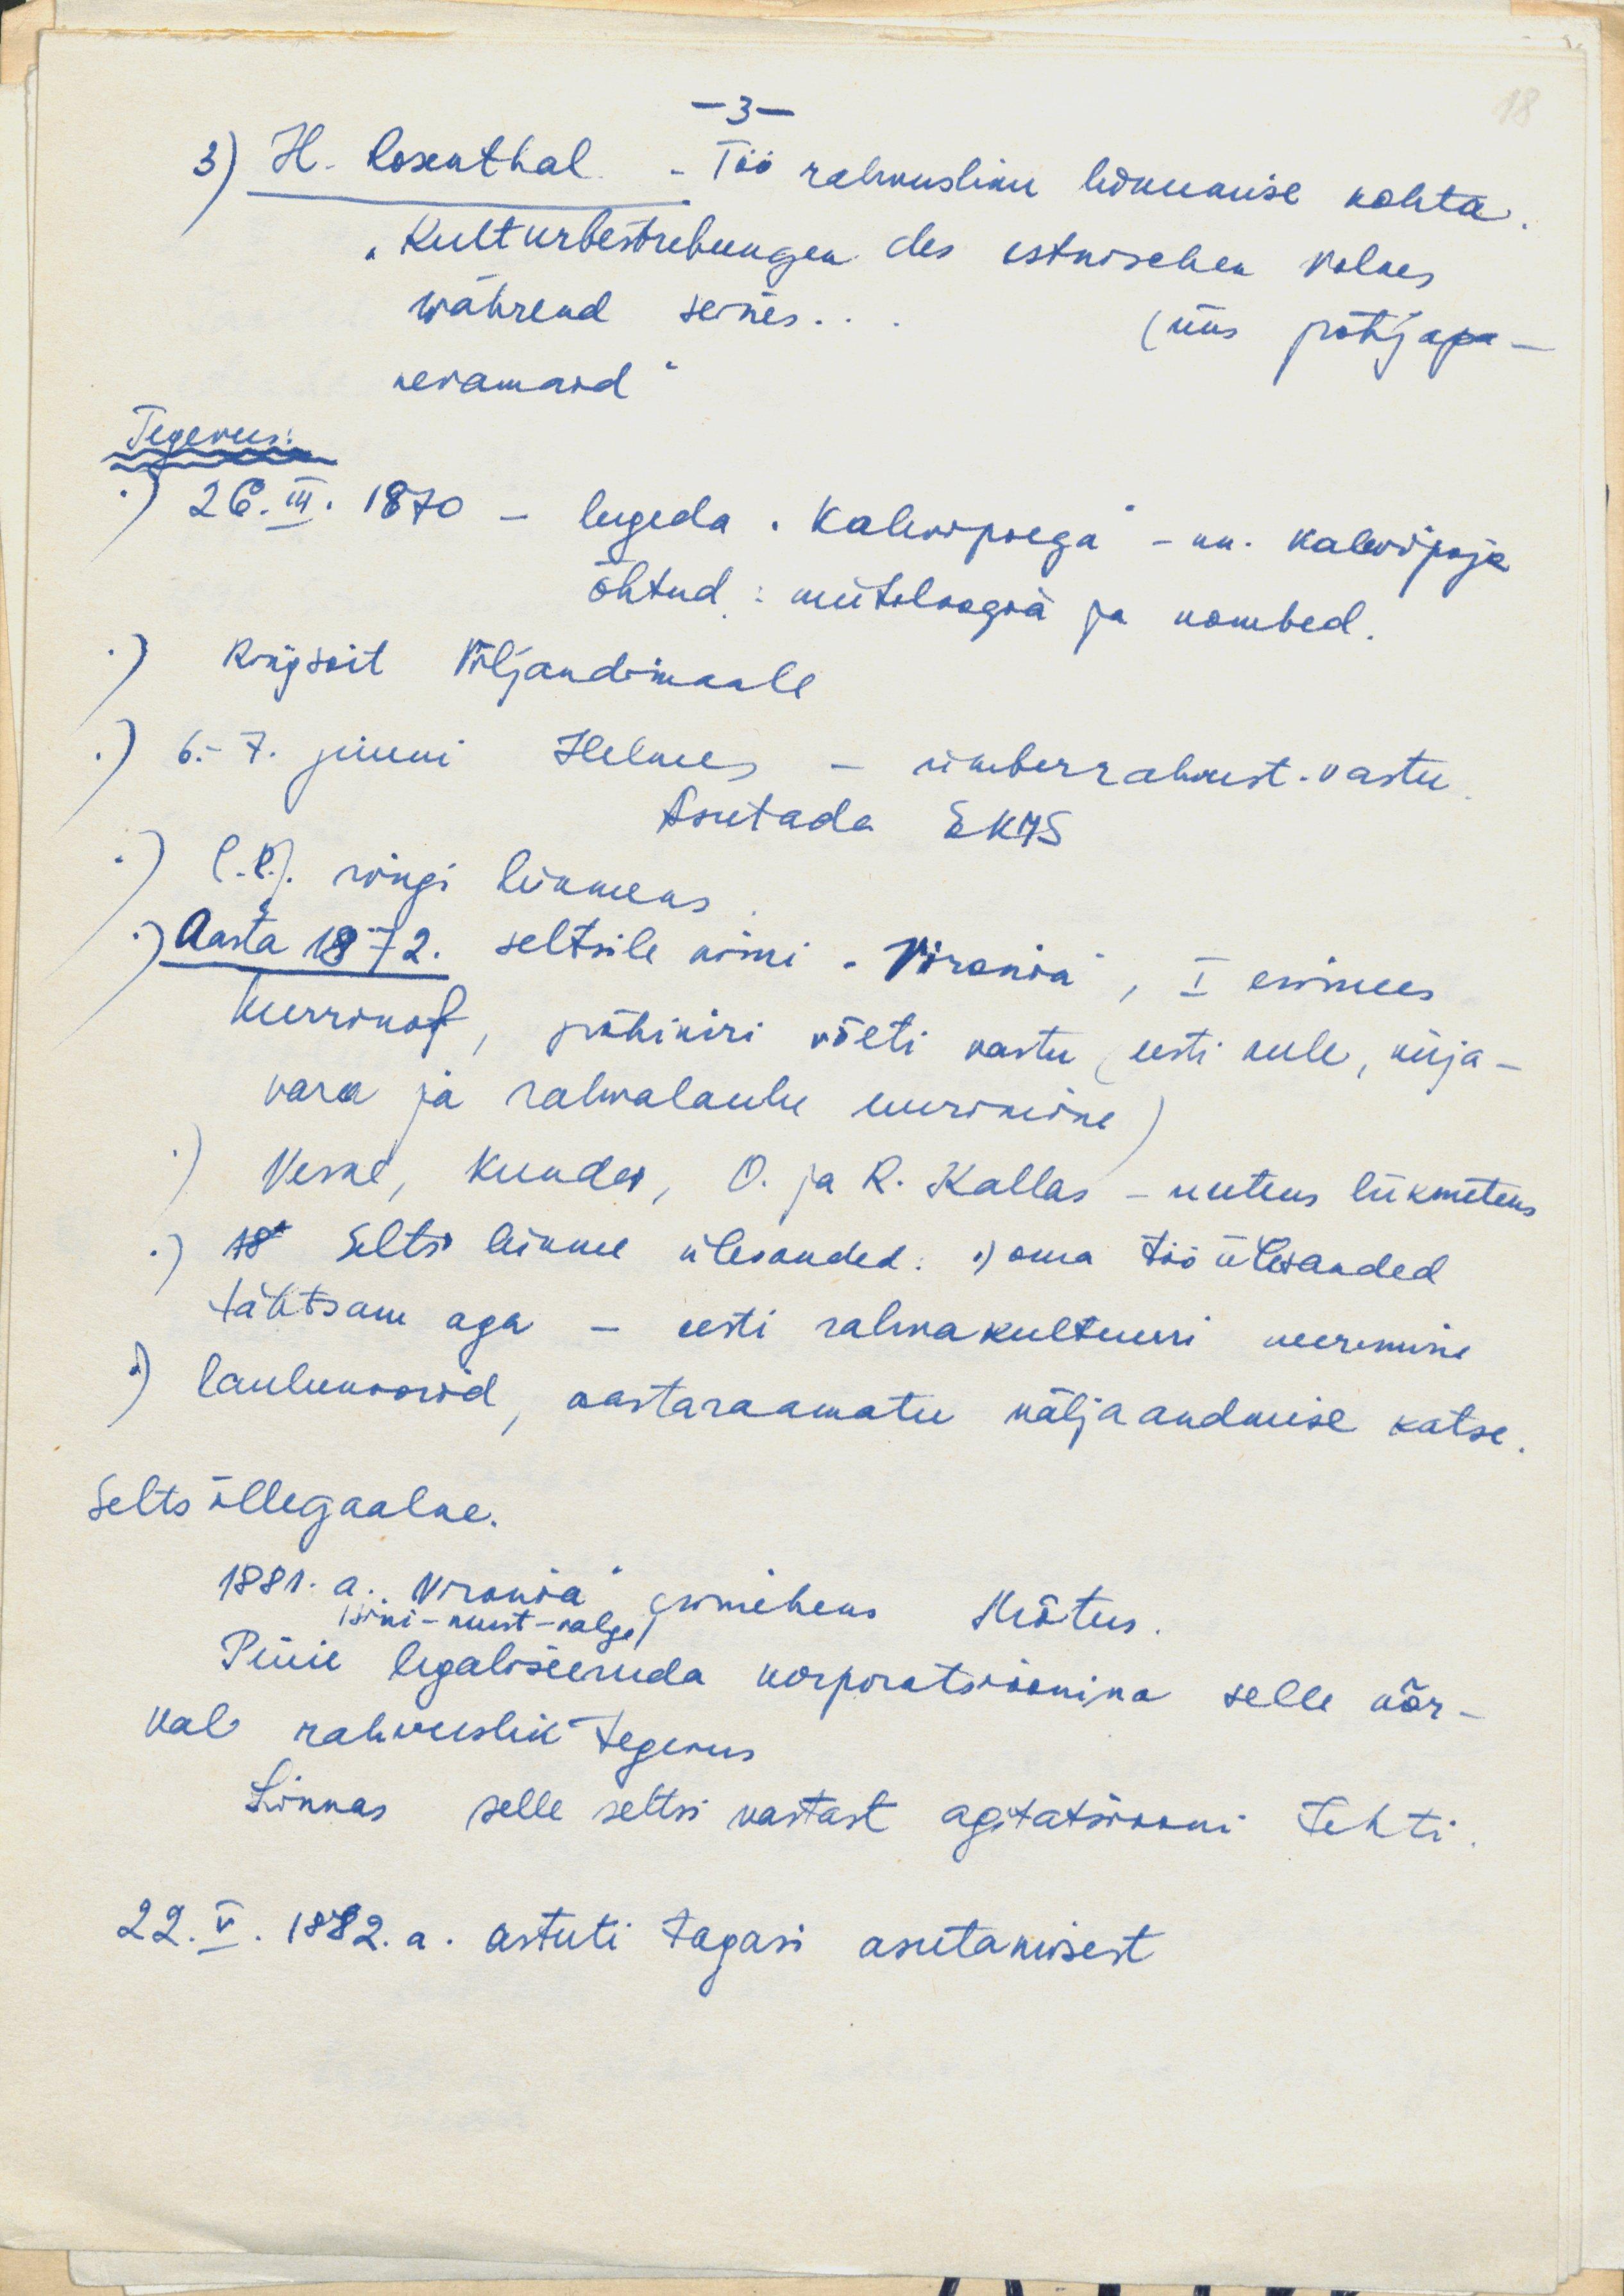 18
-3-
3) H. Rosenthal. - Töö rahvusliku liikumise kohta.
"Kulturbestrebungen des estnischen Volkes
während seines... (üks põhjapa-
nevamaid"
Tegevus:
.) 26. III. 1870 - lugeda "Kalevipoega" - nn. Kalevipoja
õhtud: mütoloogia ja kombed.
.) Ringsõit Viljandimaale
.) 6.-7. juuni Helmes - ümberrahvust. vastu.
Asutada EKMS
.) ringi liikmeks.
.) Aasta 1872. seltsile nimi "Vironia", I esimees
Hurrinof, põhikiri võeti vastu (eesti keele, kirja-
vara ja rahvalaulu uurimine)
.) Veske, Kunder, O. ja R. Kallas - uuteks liikmeteks
.) 18 Seltsi liikme ülesanded: .) oma töö ülesanded
tähtsam aga - eesti rahvakultuuri uurimine
.) laulukoorid, aastaraamatu väljaandmise katse.
Selts illegaalne.
1881. a. "Vironia" esimeheks Mõtus.
(sini-must-valge)
Püüe legaliseeruda korporatsioonina selle kõr-
val rahvuslik tegevus
Linnas selle seltsi vastast agitatsiooni tehti.
22. V. 1882. a. astuti tagasi asutamisest